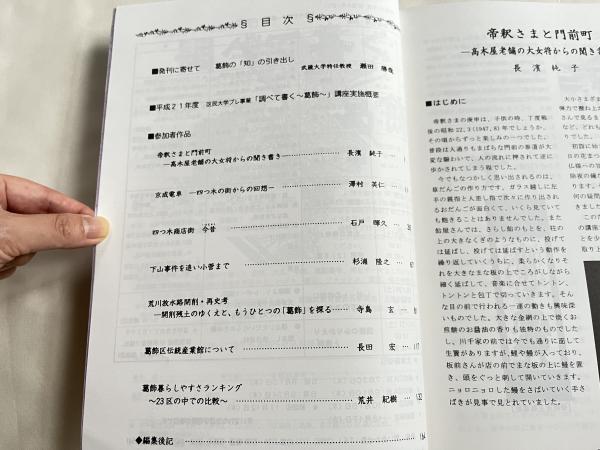 § 目 次 §
■発刊に寄せて 葛飾の「知」の引き出し
武蔵大学特任教授 瀬田 勝哉
■平成21年度 区民大学プレ事業「調べて書く〜葛飾〜」講座実施概要
■参加者作品
帝釈さまと門前町
―高木屋老舗の大女将からの聞き書き― 長濱 純子
京成電車 ―四つ木の街からの回想― 澤村 英仁
四つ木商店街 今昔 石戸 暉久
下山事件を追い小菅まで 杉浦 隆之
荒川放水路開削・再史考
―開削残土のゆくえと、もうひとつの「葛飾」を探る…… 寺島 玄
葛飾区伝統産業館について 長田 宏 … 117
葛飾暮らしやすさランキング
〜23区の中での比較〜 荒井 紀樹 … 132
◆編集後記
帝釈さまと門前町
―高木屋老舗の大女将からの聞き書
長 濱 純 子
■はじめに
帝釈さまの庚申は、子供の時、丁度戦
後の昭和22、3(1947、8)年でしょうか、
その頃からずっと楽しみの一つでした。
普段は人通りもまばらな門前の参道が大
変な賑わいで、人の流れに押されて逆に
歩かされてしまう程でした。
今でもなつかしく思い出されるのは、
草だんごの作り方です。ガラス越しに左
手の親指と人差し指で次々に作り出され
るおだんごが面白くて、いくら見ていて
も飽きることはありませんでした。また
飴屋さんでは、さらし飴のもとを、柱の
上の大きなくぎのようなものに、投げて
は延ばし、投げては延ばすという動作を
繰り返していくうちに、柔らかくなりそ
れを大きなまな板の上でころがしながら
細く延ばして、音楽に合せてトントン、
トントンと包丁で切っていきます。そん
な目の前で行われる一連の動きも興味深
いものでした。大きな金網の上で焼くお
煎餅のお醤油の香りも独特のものでした
し、川千家の前では今でも通りに面して
生簀がありますが、鯉や鰻が入っており、
板前さんが店の前でまな板の上に鰻を置
き、頭をぐっと刺して開いていきます。
ニョロニョロした鰻をさばいていく手さ
ばきが見事で見とれていました。